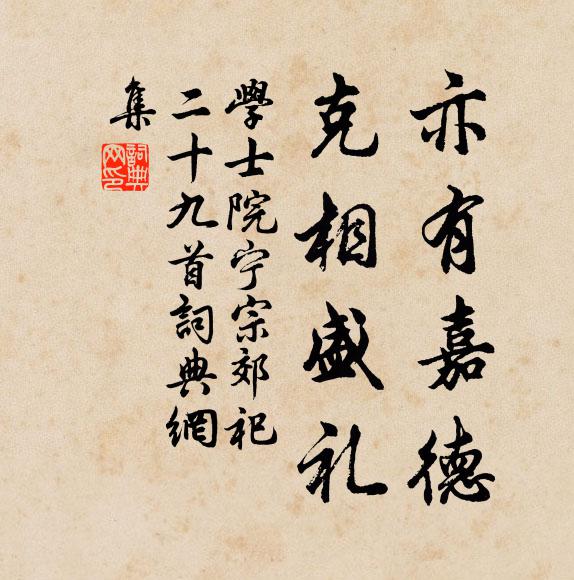 亦有嘉德
克相盛礼
學士院宁宗郊祀
二十九首詞典網
集
詞典
网印